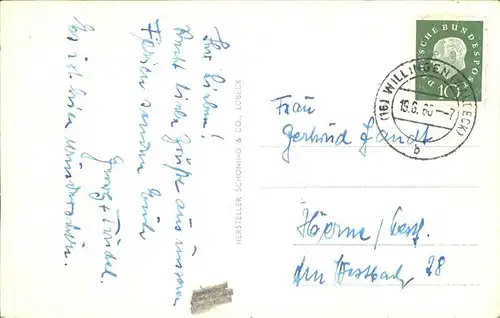 Ihr Lieben!
Recht liebe Grüße aus unseren
Ferien senden Euch
Es ist hier wunderschön.
HERSTELLER SCHÖNING & CO., LÜBECK
DEUTSCHE BUNDESPOST
10
(16) WILLINGEN (WALDECK)
15.6.60 - 7
b
Frau
Gertrud Zandt
Hörne / Westf.
Am Westbach 28